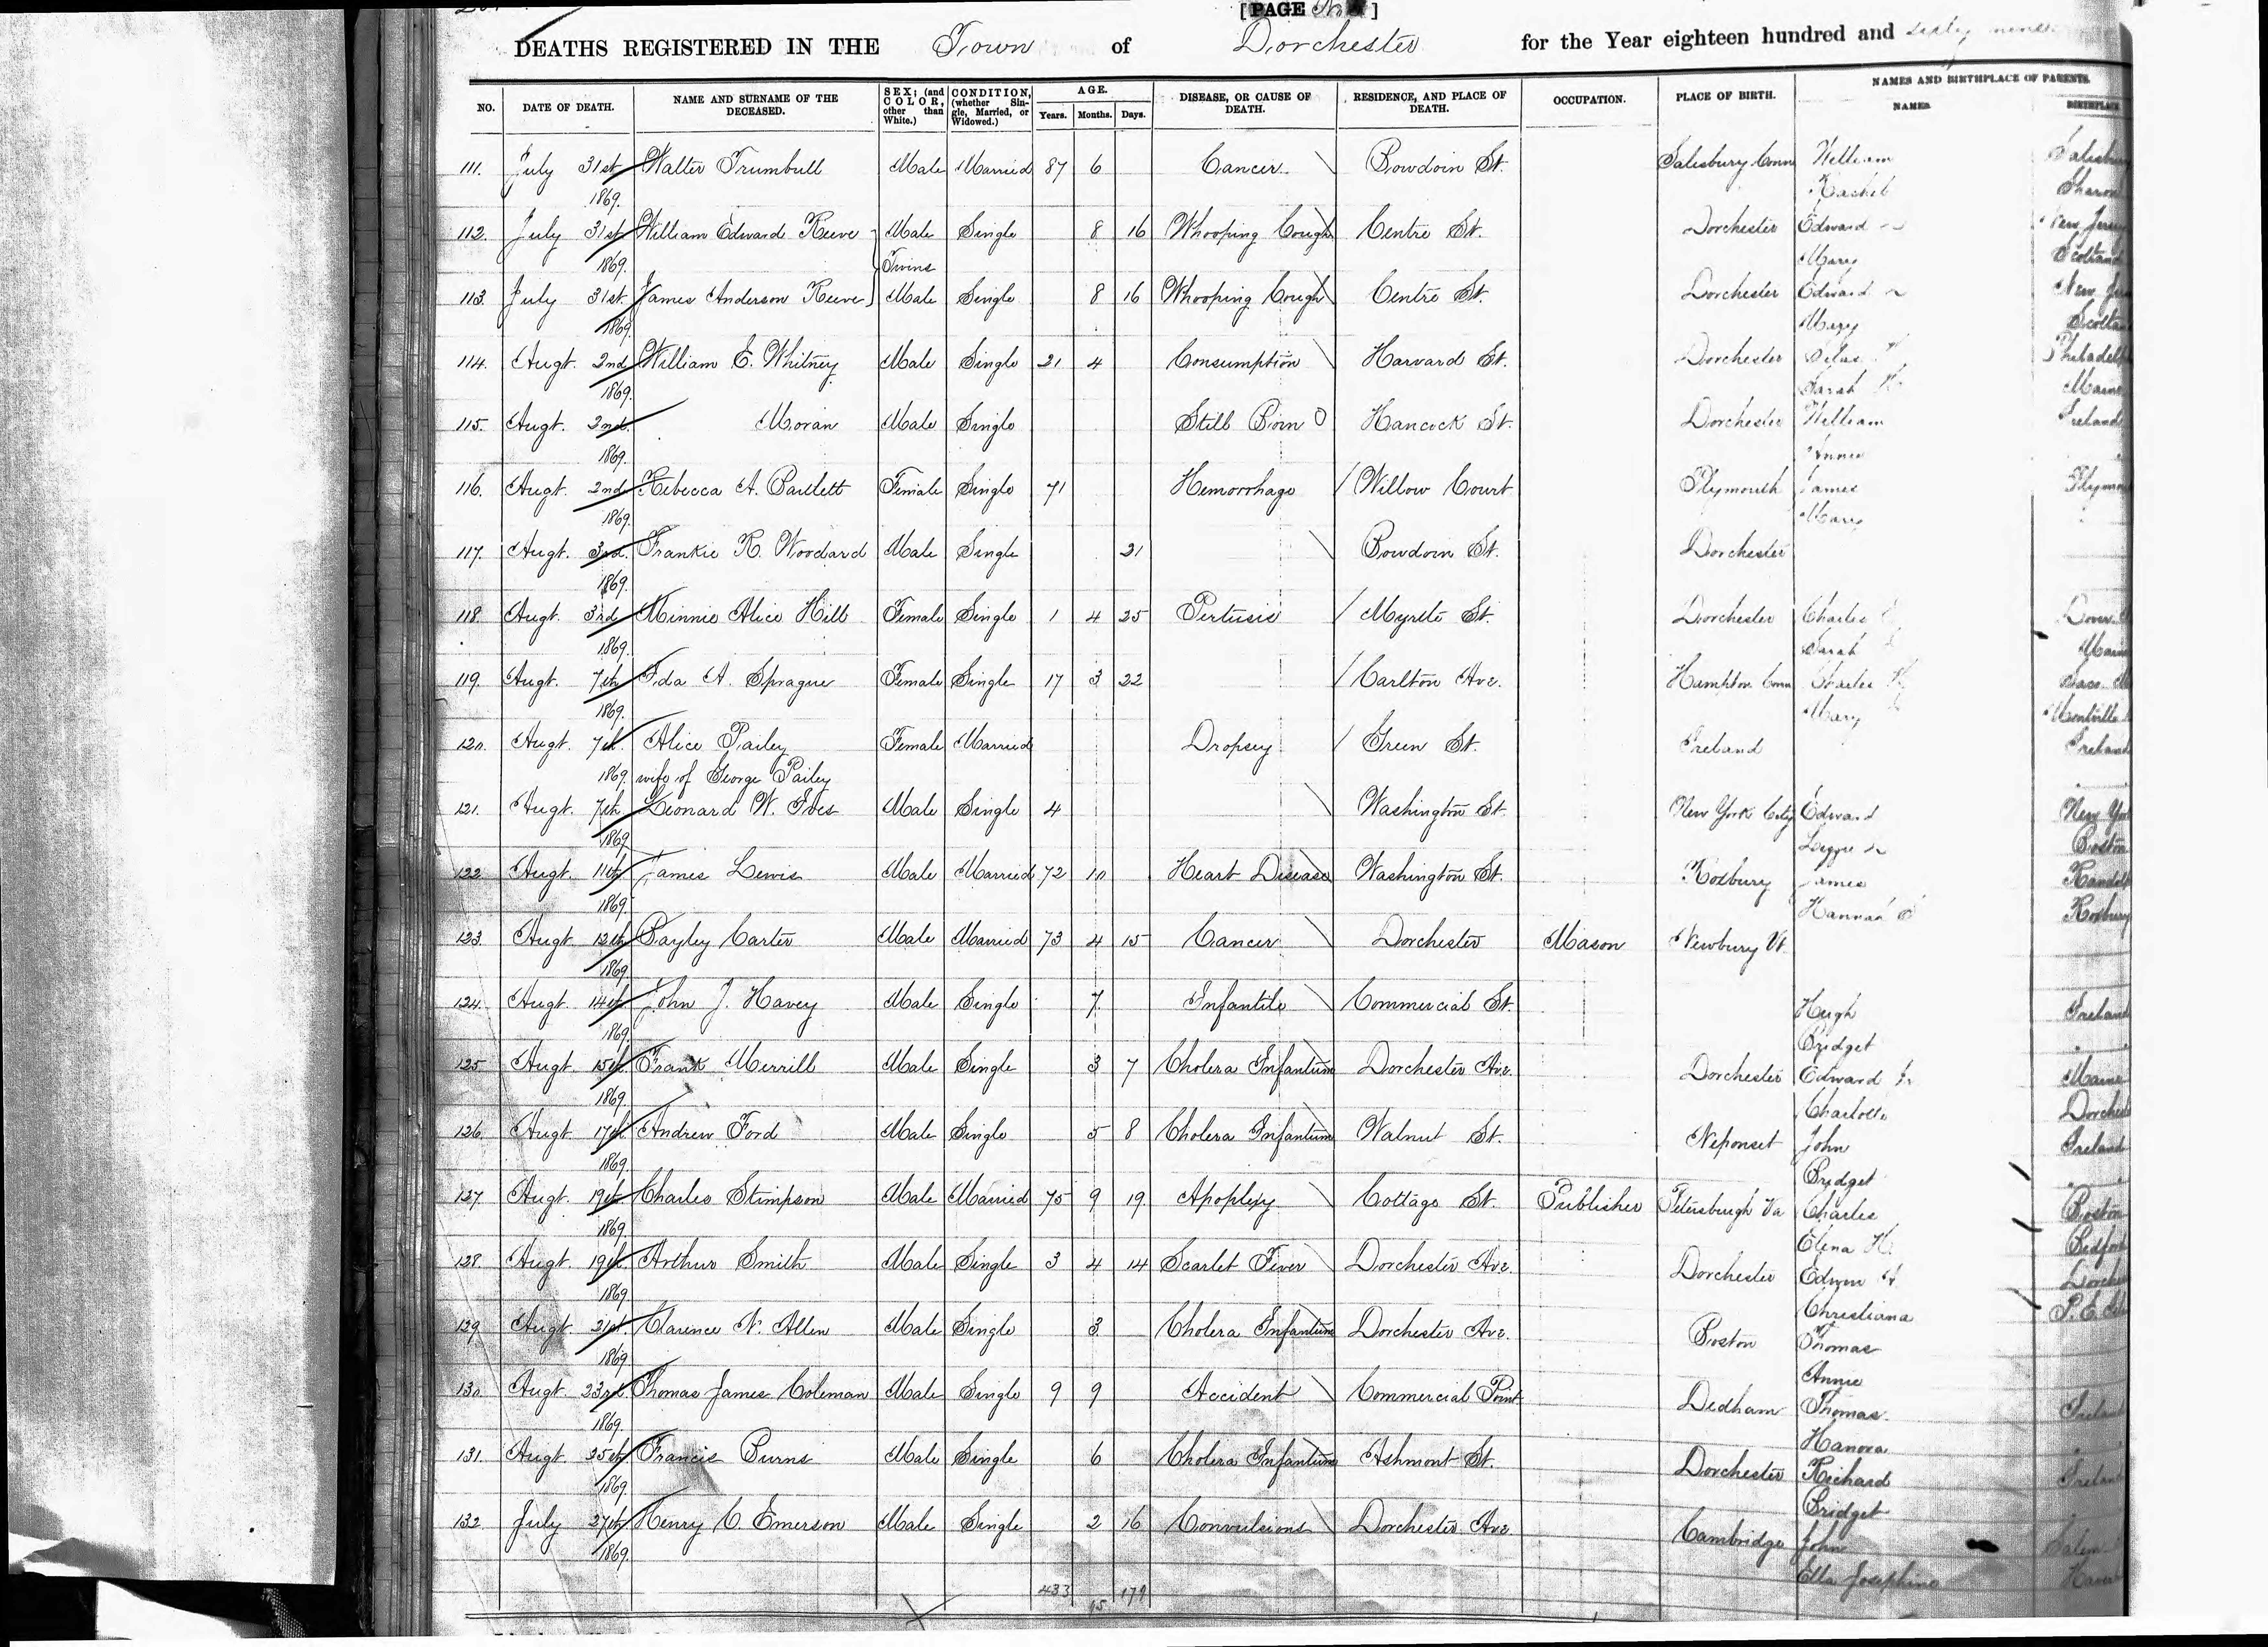 [PAGE
DEATHS REGISTERED IN THE Town of Dorchester for the Year eighteen hundred and sixty nine
NO. DATE OF DEATH. NAME AND SURNAME OF THE DECEASED. SEX; (and COLOR, other than White.) CONDITION, (whether Single, Married, or Widowed.) AGE. Years. Months. Days. DISEASE, OR CAUSE OF DEATH. RESIDENCE, AND PLACE OF DEATH. OCCUPATION. PLACE OF BIRTH. NAMES AND BIRTHPLACE OF PARENTS. NAMES. BIRTHPLACE
111. July 31st Walter Trumbull Male Married 87 6 Cancer Bowdoin St. Salisbury Conn William
1869. Rachel Sharon
112. July 31st William Edward Reeve Male Single 8 16 Whooping Cough Centre St. Dorchester Edward New Jersey
1869. Twins Mary Scotland
113. July 31st. James Anderson Reeve Male Single 8 16 Whooping Cough Centre St. Dorchester Edward New
1869 Mary
114. Augt. 2nd William E. Whitney Male Single 21 4 Consumption Harvard St. Dorchester Silas
1869. Sarah Maine
115. Augt. 2nd. Moran Male Single Still Born Hancock St. Dorchester William Ireland
1869. Annie
116. Augt. 2nd Rebecca A. Bartlett Female Single 71 Hemorrhage Willow Court Plymouth James
1869. Mary
117. Augt. 3rd. Frankie R. Woodard Male Single 21 Bowdoin St. Dorchester
1869.
118. Augt. 3rd Minnie Alice Hill Female Single 1 4 25 Pertusis Myrtle St. Dorchester Charles Dover
1869. Sarah
119. Augt. 7th Ida A. Sprague Female Single 17 3 22 Carlton Ave. Hampton Conn Charles
1869. Mary Montville
120. Augt. 7th. Alice Bailey Female Married Dropsy Green St. Ireland Ireland
1869. wife of George Bailey
121. Augt. 7th Leonard W. Ives Male Single 4 Washington St. New York City Edward New
1869 Lizzie Boston
122. Augt. 11th James Lewis Male Married 72 10 Heart Disease Washington St. Roxbury James
1869. Hannah Roxbury
123. Augt. 12th Bayley Carter Male Married 73 4 15 Cancer Dorchester Mason Newbury Vt.
1869.
124. Augt. 14th John J. Havey Male Single 7. Infantile Commercial St. Hugh Ireland
1869. Bridget
125 Augt. 15th. Frank Merrill Male Single 3 7 Cholera Infantum Dorchester Ave. Dorchester Edward Maine
1869. Charlotte
126. Augt. 17th. Andrew Ford Male Single 5 8 Cholera Infantum Walnut St. Neponset John Ireland
1869. Bridget
127 Augt. 19th Charles Stimpson Male Married 75 9 19. Apoplexy Cottage St. Publisher Petersburgh Va Charles Boston
1869. H.
128. Augt. 19th. Arthur Smith Male Single 3 4 14 Scarlet Fever Dorchester Ave. Dorchester Edwin
1869. Christiana
129 Augt. 21st. Clarence N. Allen Male Single 3 Cholera Infantum Dorchester Ave. Boston Thomas
1869 Annie
130. Augt. 23rd. Thomas James Coleman Male Single 9 9 Accident Commercial Point Dedham Thomas.
1869. Hanora
131. Augt. 25th Francis Burns Male Single 6 Cholera Infantum Ashmont St. Dorchester Richard
1869. Bridget
132 July 27th Henry C. Emerson Male Single 2 16 Convulsions Dorchester Ave. Cambridge John
1869. Ella Josephine
433 15 179